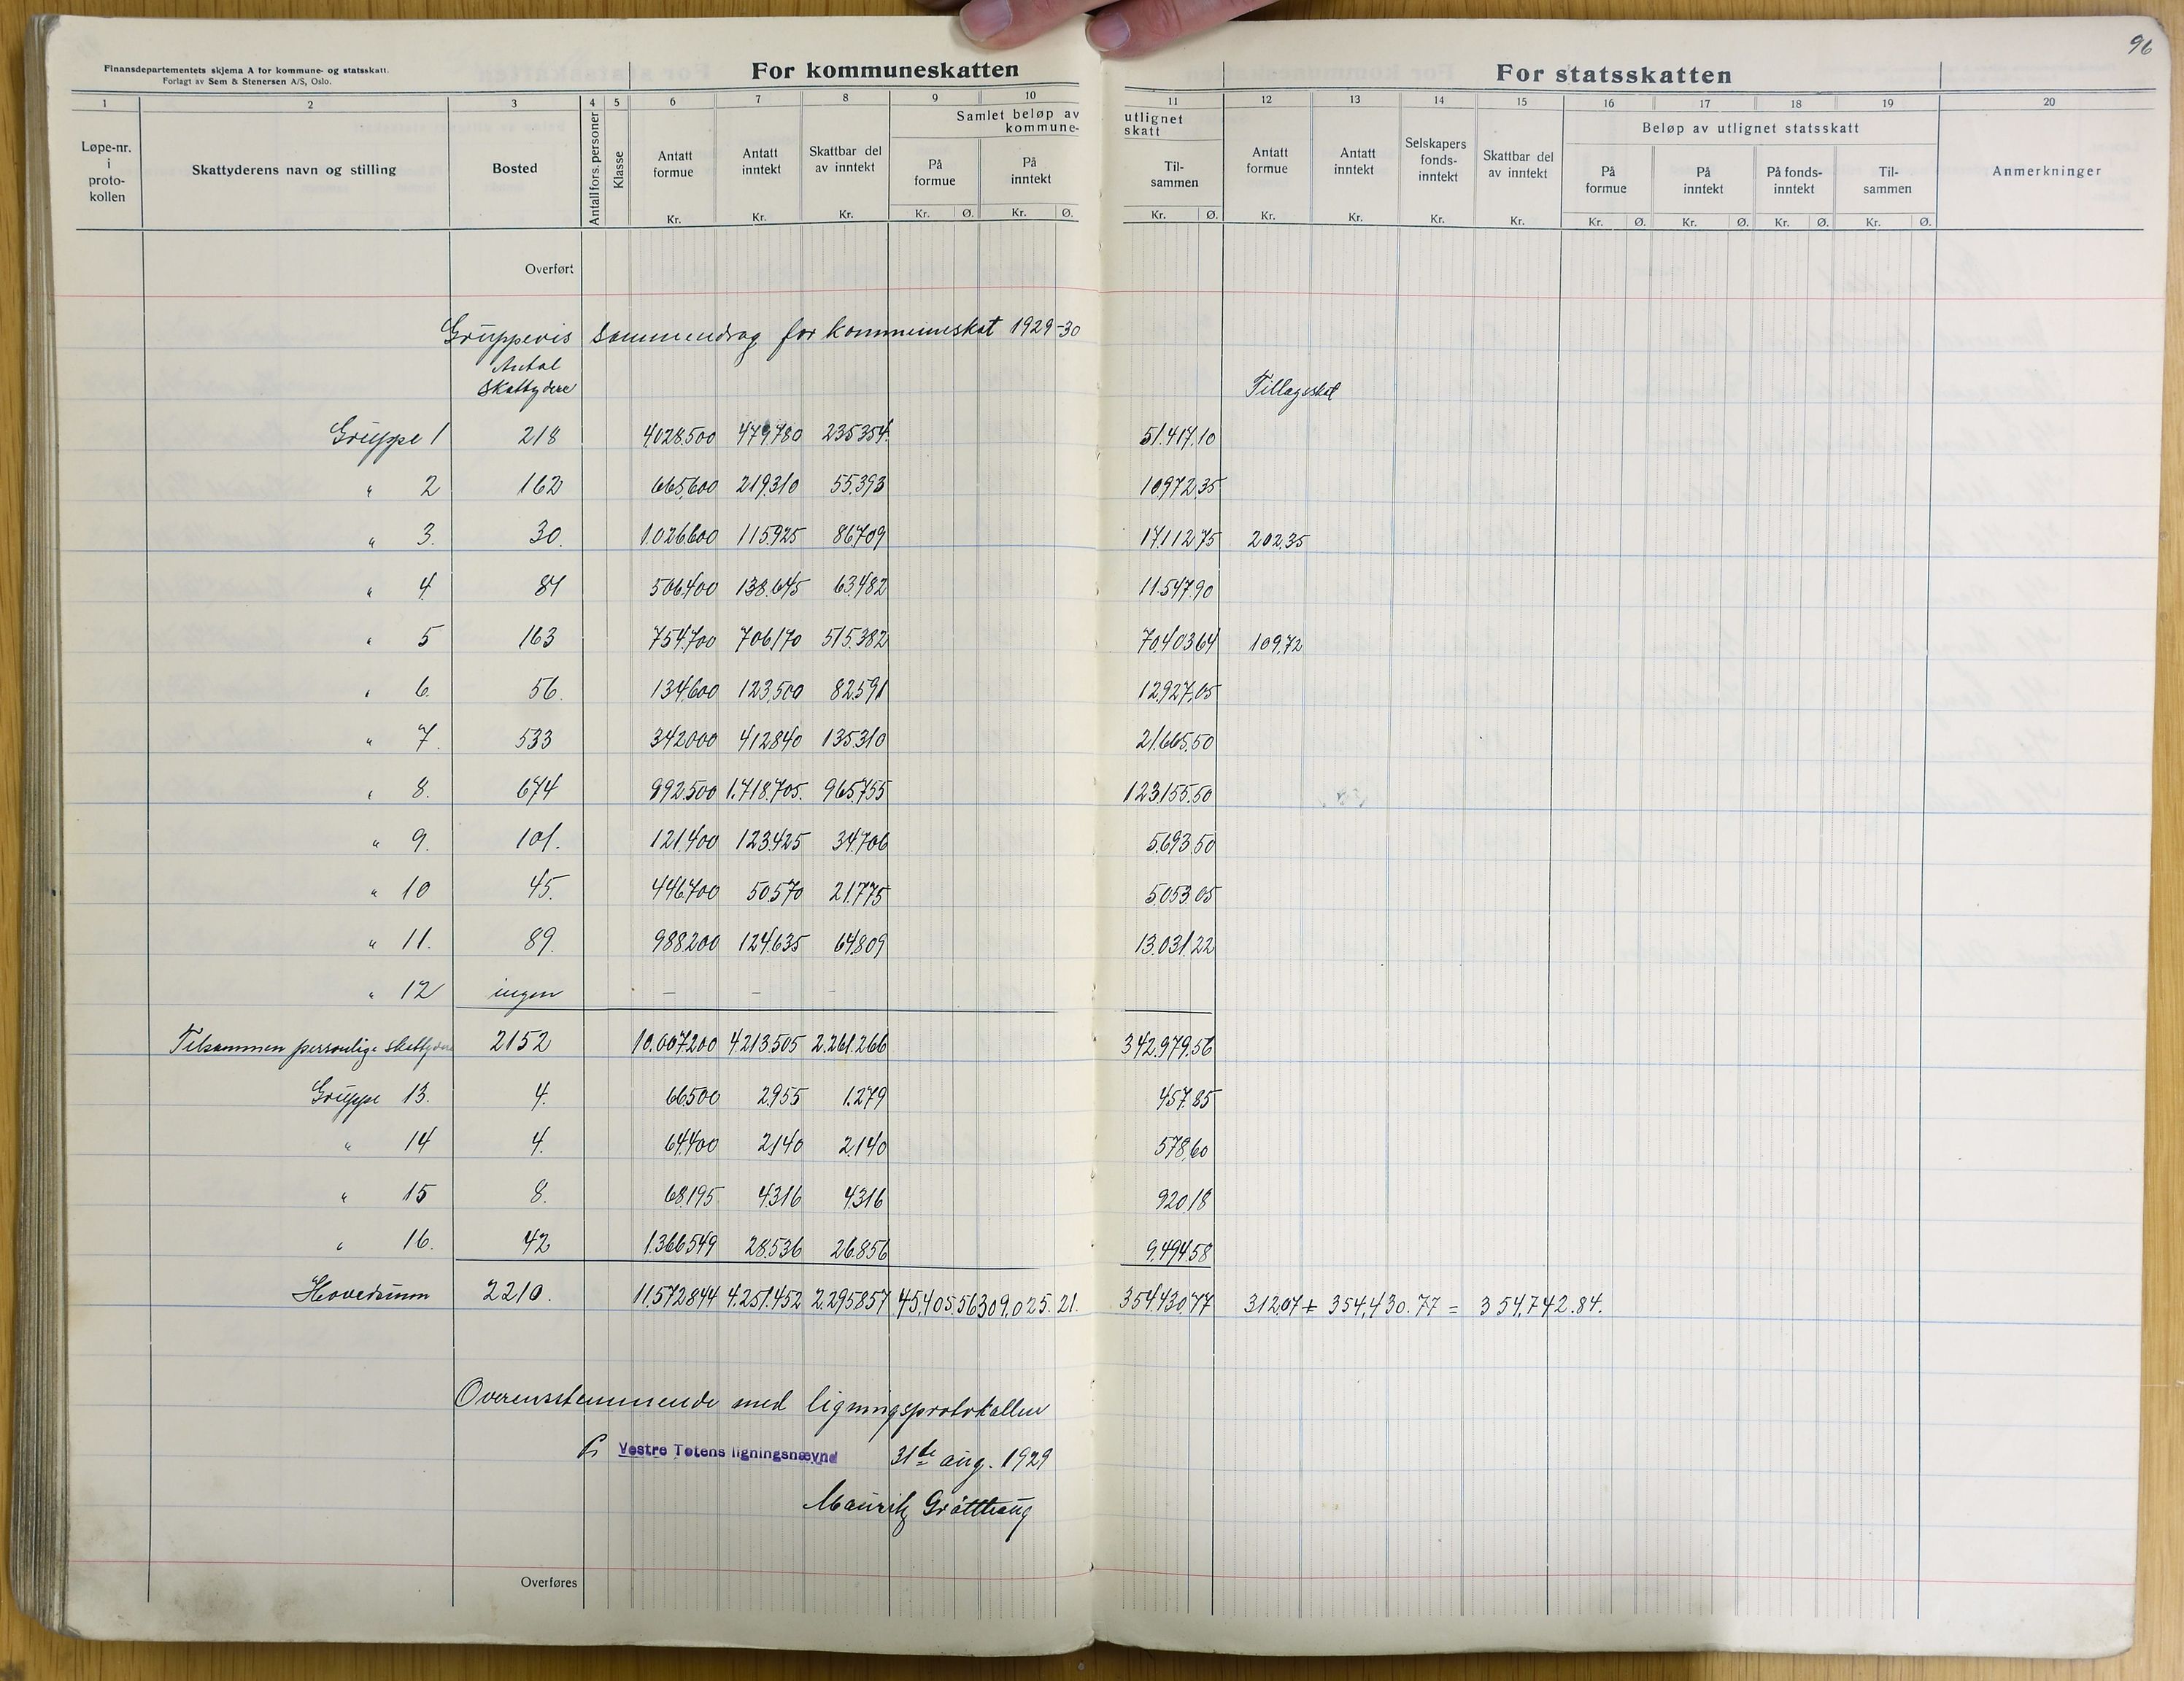 96
Finansdepartementets skjema A for kommune- og statsskatt.
Forlagt av Sem & Stenersen A/S, Oslo.
For kommuneskatten
For statsskatten
1 2 3 4 5 6 7 8 9 10 11 12 13 14 15 16 17 18 19 20
Løpe-nr. i proto-kollen
Skattyderens navn og stilling
Bosted
Antall fors. personer
Klasse
Antatt formue
Antatt inntekt
Skattbar del av inntekt
Samlet beløp av kommune-
På formue
På inntekt
utlignet skatt
Til-sammen
Antatt formue
Antatt inntekt
Selskapers fonds-inntekt
Skattbar del av inntekt
Beløp av utlignet statsskatt
På formue
På inntekt
På fonds-inntekt
Til-sammen
Anmerkninger
Kr. Kr. Kr. Kr. Ø. Kr. Ø. Kr. Ø. Kr. Kr. Kr. Kr. Kr. Ø. Kr. Ø. Kr. Ø. Kr. Ø.
Overført
Gruppevis sammendrag for kommuneskat 1929-30
Antal
Skattydere
Tillagsskat
Gruppe 1 218 4028.500 479780 235354. 51.417.10
" 2 162 665.600 219310 55.393 10972.35
" 3. 30. 1.026.600 115.925 86709 17.112.75 202.35
" 4 81 506.400 138.645 63.482 11.547.90
" 5 163 754.700 706170 515.382 70.403.64 109.72
" 6. 56. 134.600 123,500 82.591 12.927.05
" 7. 533 342000 412840 135310 21.665.50
" 8. 674 992500 1.718.705. 965.755 123.155.50
" 9. 101. 121.400 123.425 34.706 5.693.50
" 10 45. 446.700 50.570 21.775 5.053.05
" 11. 89. 988.200 124.635 64.809 13.031.22
" 12 ingen – – –
Tilsammen personlige skattydere 2152 10.007.200 4213.505 2.261.266 342.979.56
Gruppe 13. 4. 66.500 2.955 1.279 457.85
" 14 4. 64.400 2.140 2.140 578.60
" 15 8. 68.195 4.316 4.316 920.18
" 16. 42 1.366.549 28.536 26.856 9.494.58
Hovedsum 2210. 11.572844 4.251.452 2.295857 45,405.56 309,025.21. 354.430.77 312.07 + 354,430.77 = 354,742.84.
Overensstemmende med ligningsprotokollen
f. Vestre Totens ligningsnævnd 31te aug. 1929
Mauritz Gråtthaug
Overføres